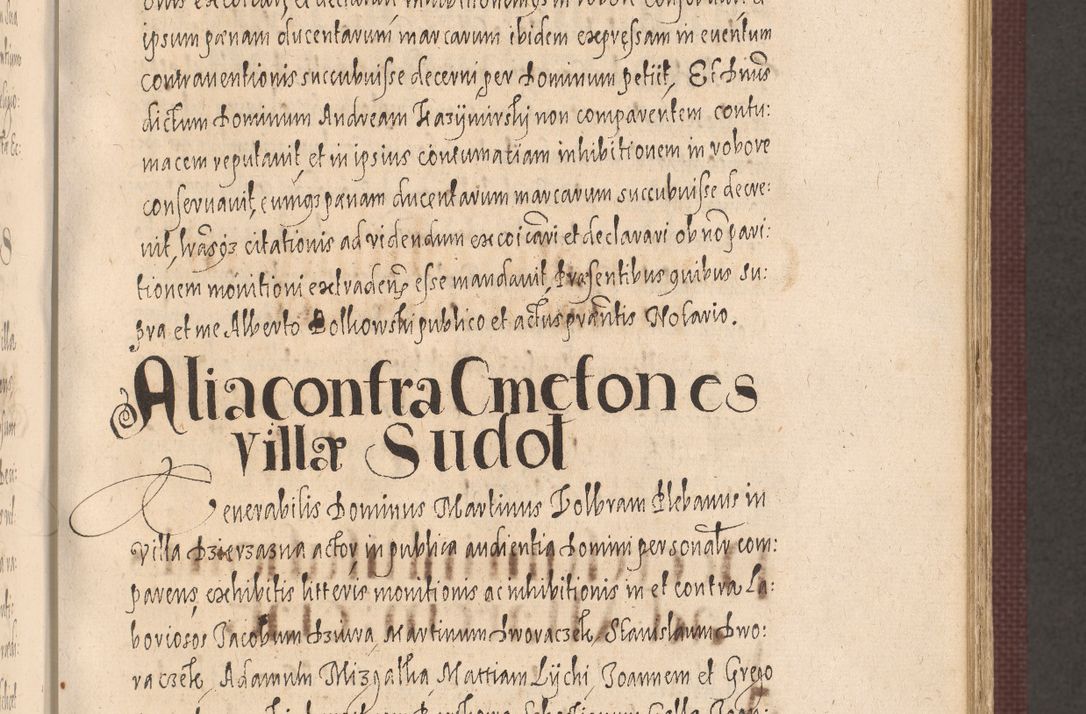 ipsum pænam ducentarum marcarum ibidem expressam in eventum
contraventionis succubuisse decerni per Dominum petiit, Et Dnus
dictum Dominum Andream Kazijmirskij non comparentem contu:
macem reputavit, et in ipsius contumatiam inhibitionem in robore
conservavit, eumqz pænam ducentarum marcarum succubuisse decre:
vit, lrãsqz citationis ad videndum excoicãri et declarari ob nõ pari:
tionem monitioni extradend esse mandavit, Præsentibus quibus su:
pra et me Alberto Dolkowski publico et actus prãntis Notario.
Alia contra Cmetones
Villæ Sudoł
Venerabilis Dominus Martinus Holbram Plebanus in
villa Dzierzazna actor, in publica audientia Domini personalr com:
parens, exhibitis litteris monitionis ac inhibitionis in et contra La:
boriosos Jacobum Dziura, Martinum Dworaczek, Stanislaum Dwo:
raczek, Adamum Mizgalka, Mattiam Lÿchi, Joannem et Grego